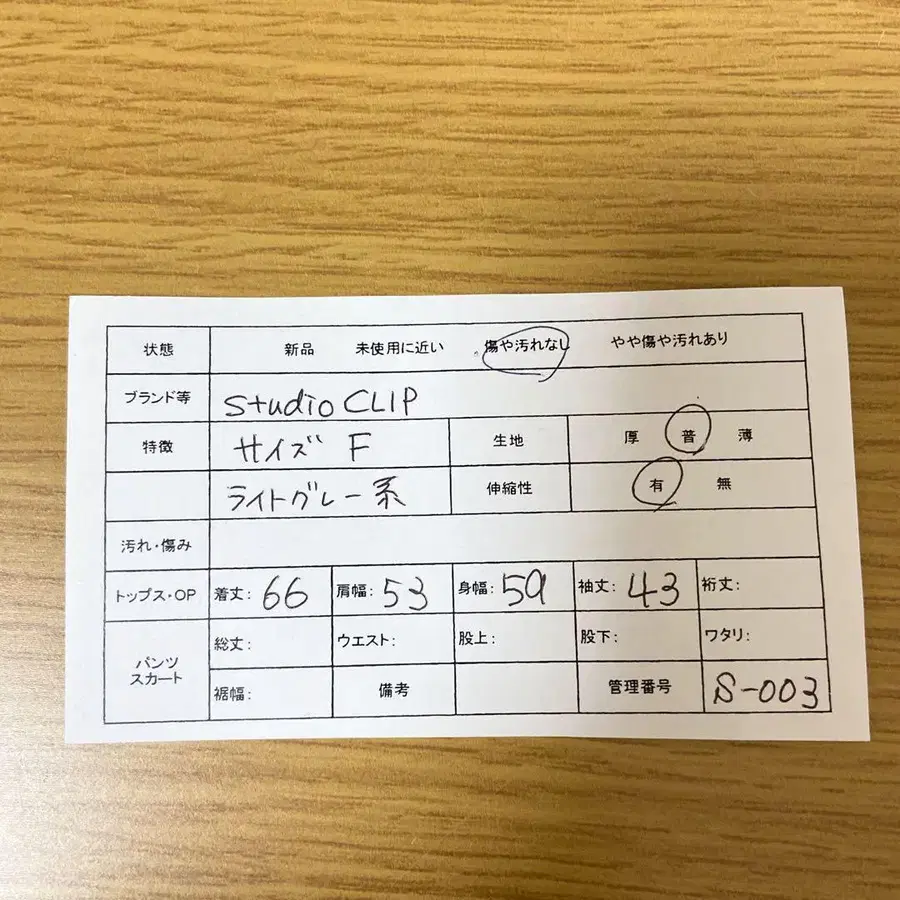 状態 新品 未使用に近い 傷や汚れなし やや傷や汚れあり
ブランド等 studio CLIP
特徴 サイズ F 生地 厚 普 薄
ライトグレー系 伸縮性 有 無
汚れ・傷み
トップス・OP 着丈: 66 肩幅: 53 身幅: 59 袖丈: 43 裄丈:
パンツ スカート 総丈: ウエスト: 股上: 股下: ワタリ:
裾幅: 備考 管理番号 S-003